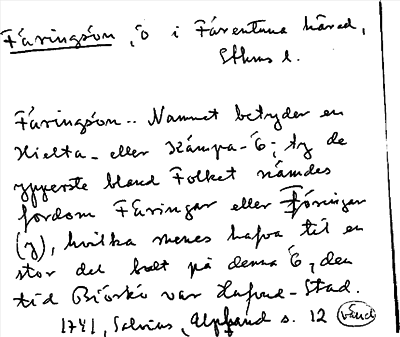 Färingsön, ö i Färentuna härad,
Sthms l.
Färingsön.. Namnet betyder en
Hielta- eller Kämpa-Ö; ty de
ypperste bland Folket nämdes
fordom Färingar eller Föringar
(y), hvilka menes hafva til en
stor del bott på denna Ö, den
tid Biörkö var Hufvud-Stad.
1741, Salvius, Uppland s. 12 (vänd)